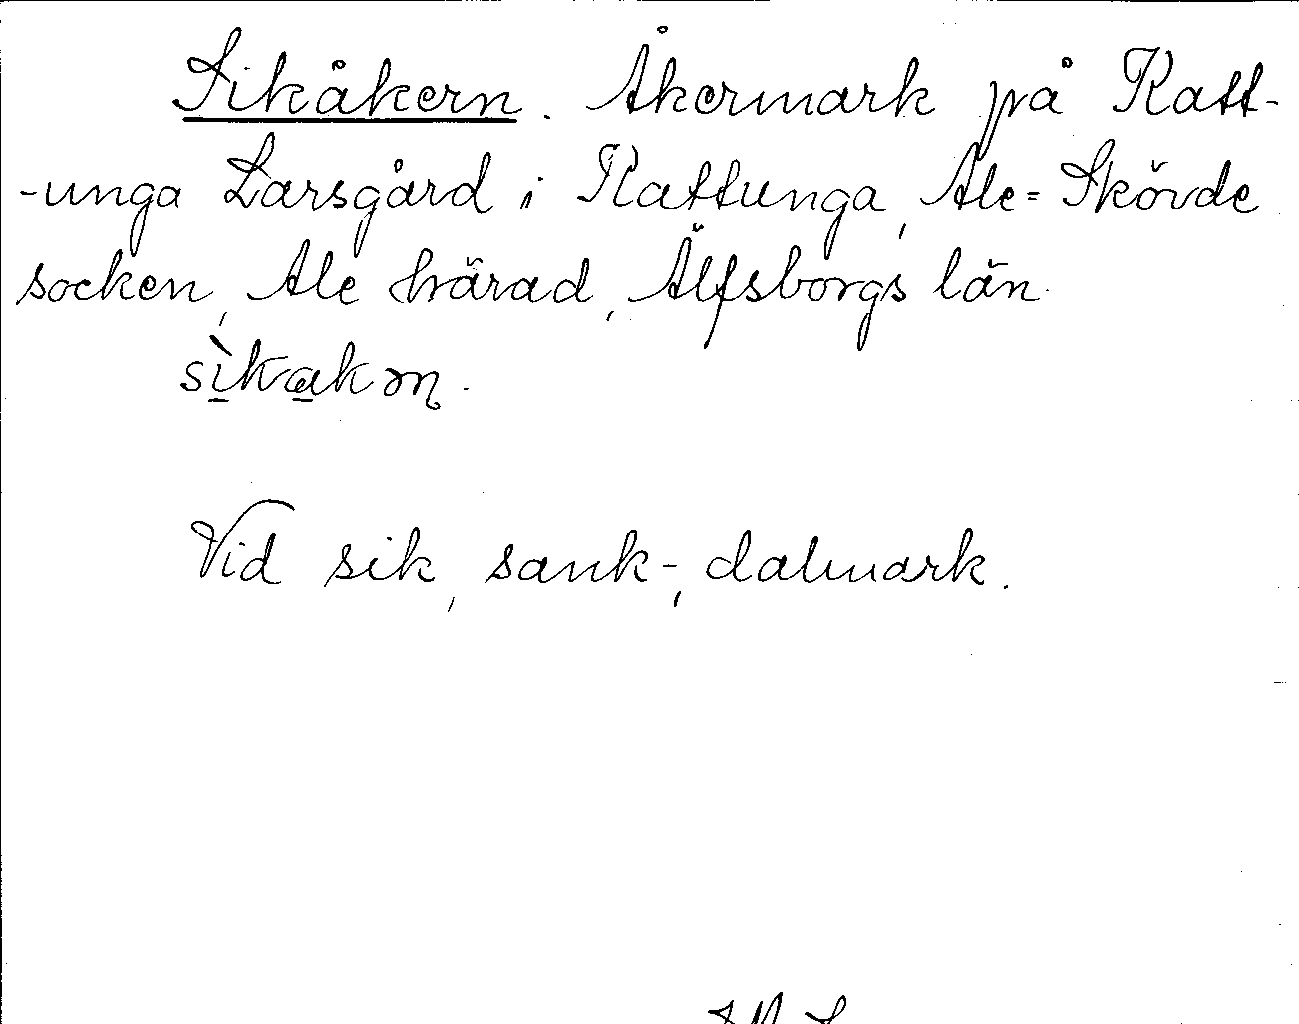 Sikåkern. Åkermark på Katt-
-unga Larsgård i Kattunga, Ale=Skövde
socken, Ale härad, Älfsborgs län.
sìkakɷn.
Vid sik, sank-, dalmark.